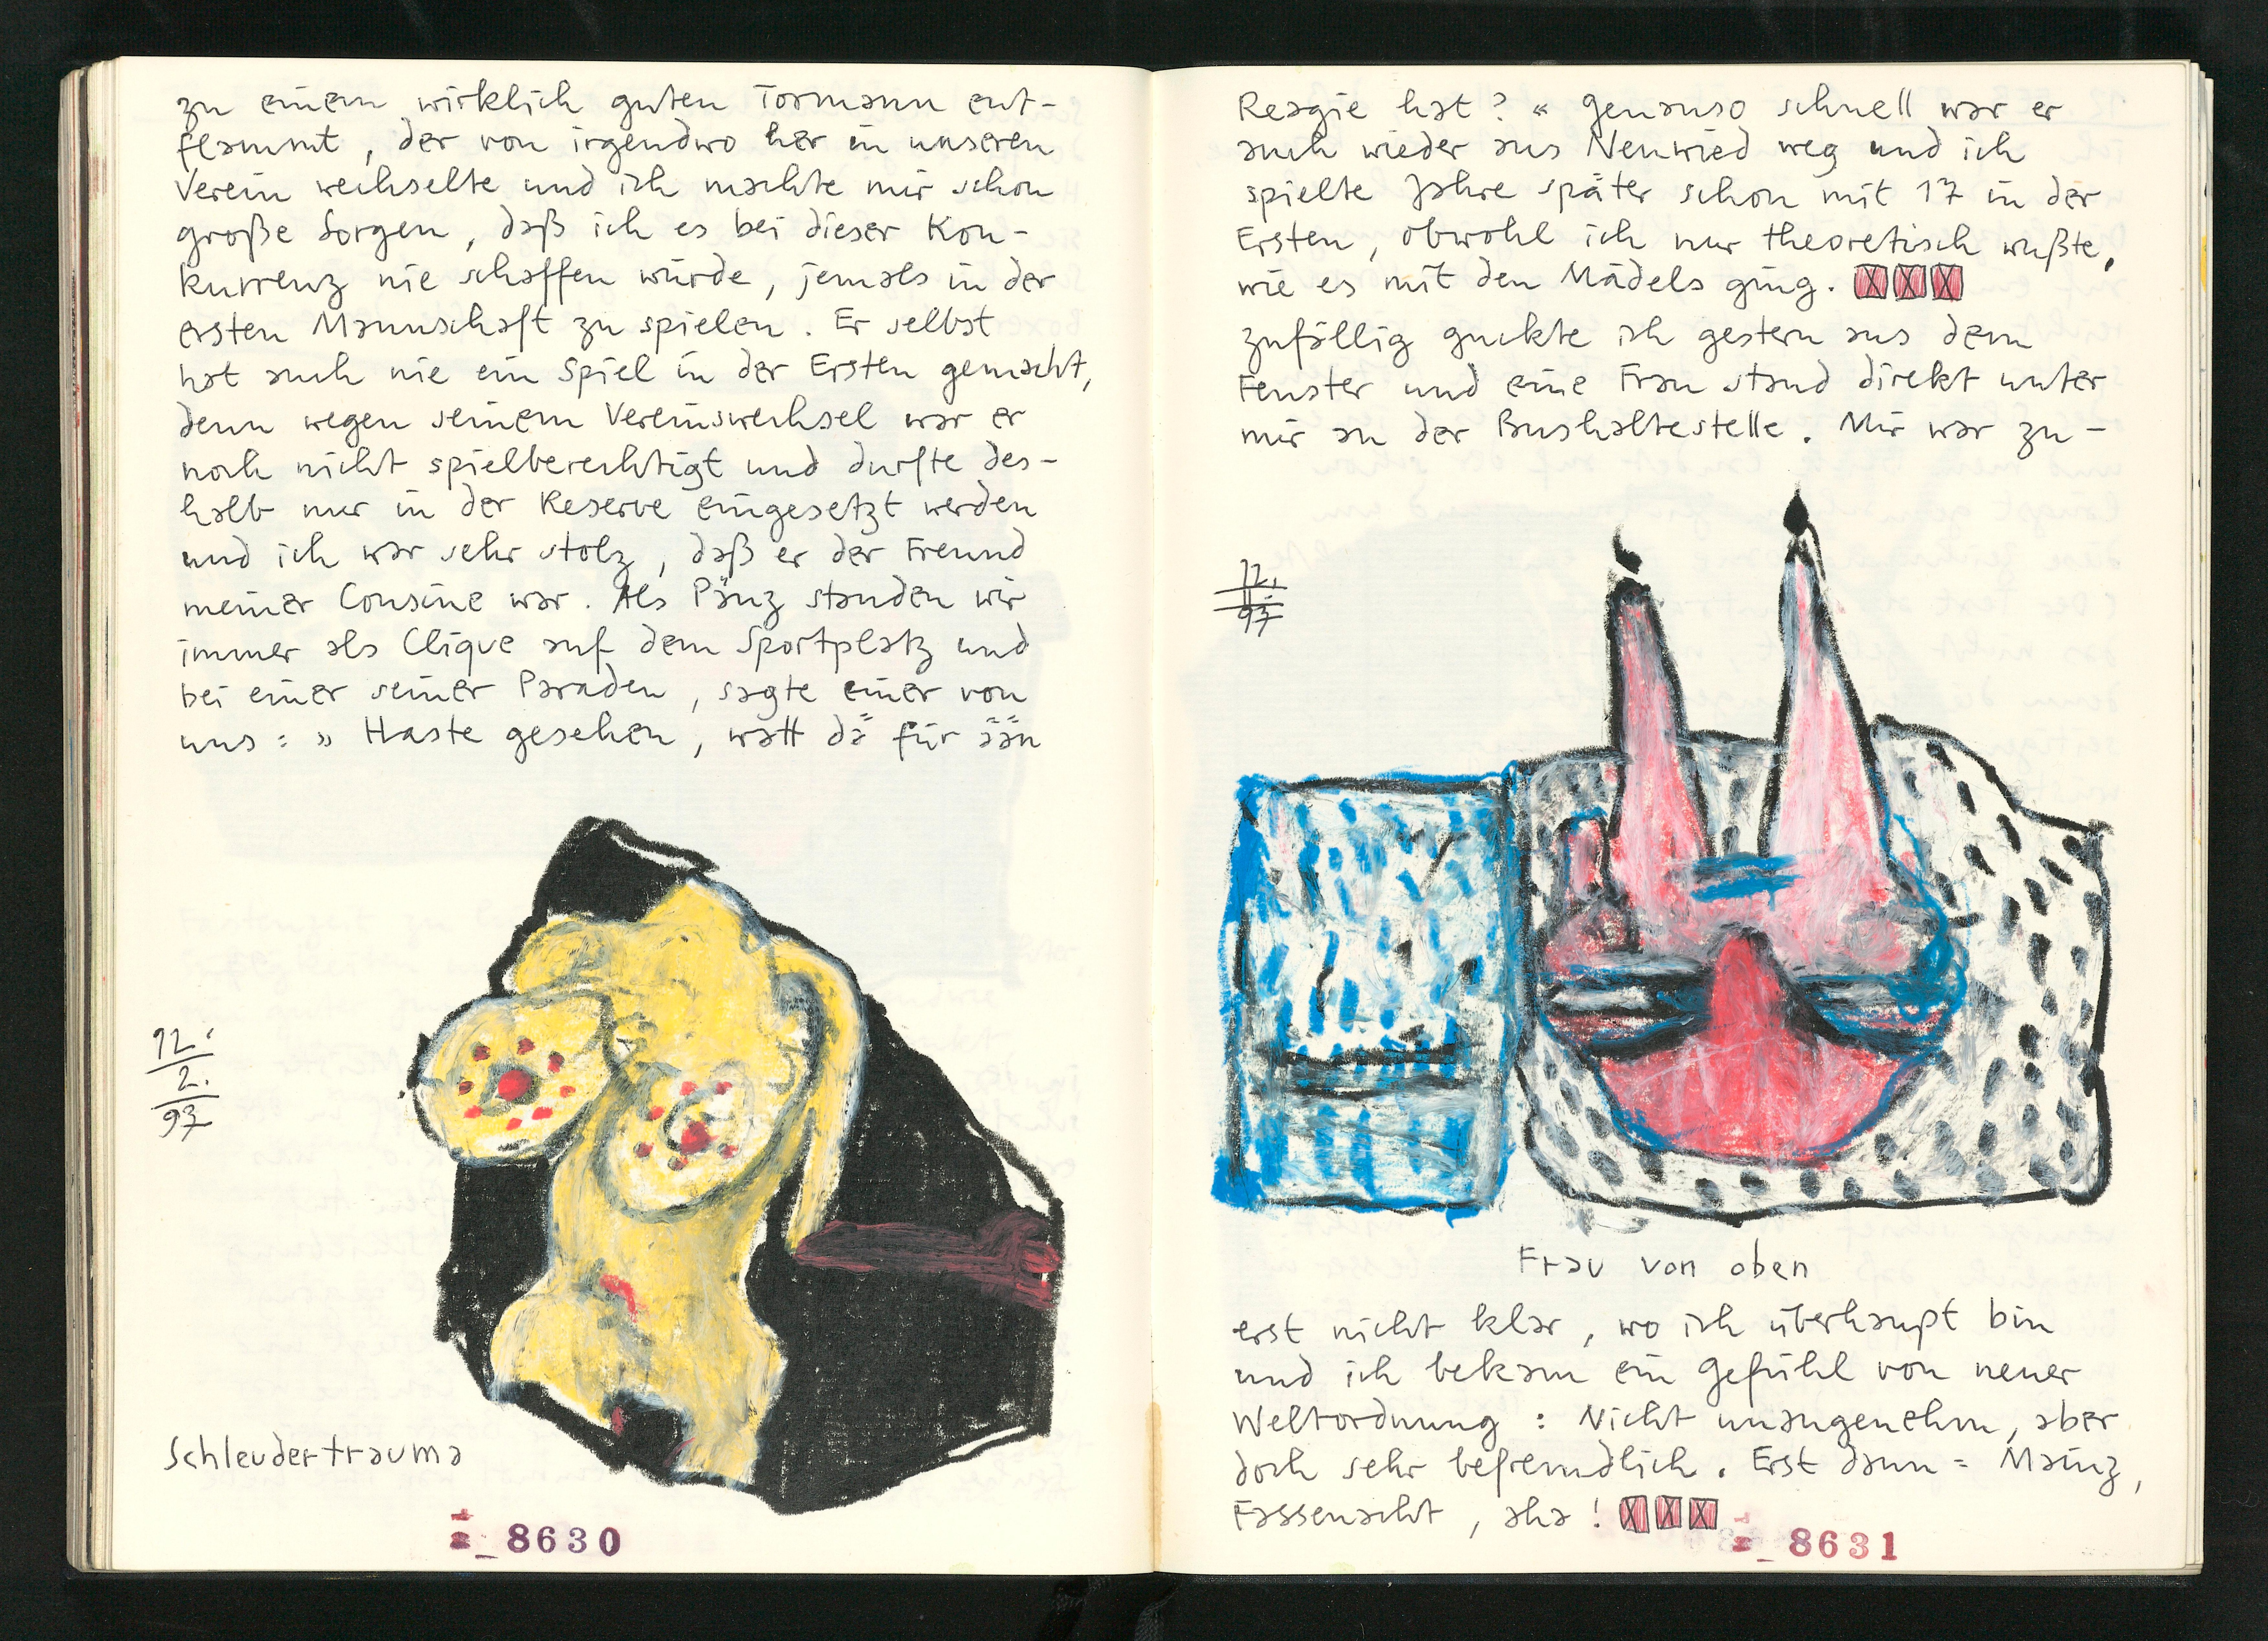 zu einem wirklich guten Tormann ent-
flammt, der von irgendwo her in unseren
Verein wechselte und ich machte mir schon
große Sorgen, daß ich es bei dieser Kon-
kurrenz nie schaffen würde, jemals in der
ersten Mannschaft zu spielen. Er selbst
hat auch nie ein Spiel in der Ersten gemacht,
denn wegen seinem Vereinswechsel war er
noch nicht spielberechtigt und durfte des-
halb nur in der Reserve eingesetzt werden
und ich war sehr stolz, daß er der Freund
meiner Cousine war. Als Pänz standen wir
immer als Clique auf dem Sportplatz und
bei einer seiner Paraden, sagte einer von
uns: » Haste gesehen, watt dä für ään
12.
2.
97
Schleudertrauma
8630
Reagie hat? « Genauso schnell war er
auch wieder aus Neuwied weg und ich
spielte Jahre später schon mit 17 in der
Ersten, obwohl ich nur theoretisch wußte,
wie es mit den Mädels ging. XXX
Zufällig guckte ich gestern aus dem
Fenster und eine Frau stand direkt unter
mir an der Bushaltestelle. Mir war zu-
12.
97
Frau von oben
erst nicht klar, wo ich überhaupt bin
und ich bekam ein Gefühl von neuer
Weltordnung: Nicht unangenehm, aber
doch sehr befremdlich. Erst dann = Mainz,
Fassenacht, aha! XXX
8631